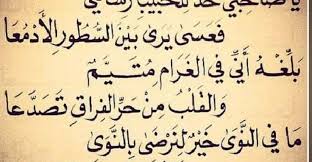 يَا صَاحِبِي خُذْ لِلْحَبِيبِ رِسَالَتِي
فَعَسَى يَرَى بَيْنَ السُّطُورِ الأَدْمُعَا
بَلِّغْهُ أَنِّي فِي الْغَرَامِ مُتَيَّمٌ
وَالْقَلْبُ مِنْ حَرِّ الْفِرَاقِ تَصَدَّعَا
مَا فِي النَّوَى خَيْرٌ لِنَرْضَى بِالنَّوَى